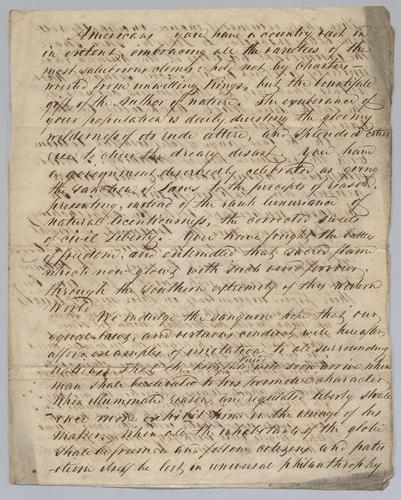 Americans you have a country vast in
in extent, embracing all the varieties of the
most salubrious climes: not by charters
wrested from unwilling Kings, but the bountiful
gift of the Author of nature. The exuberance of
your population is daily divesting the gloomy
wilderness of its rude attire, and splendid cities
rise to cheer the dreary desart. You have
a government deservedly celebrated as giving
the sanction of Laws to the precepts of reason
presenting, instead of the rank luxuriance of
natural licentiousness, the corrected sweets
of civil liberty. You have fought the battles
of freedom, and enkindled that sacred flame
which now glows with vivid fervour
through the southern extremity of this western
World.
We indulge the sanguine hope that our
equal laws, and virtuous conduct will hereafter
afford examples of imitation to all surrounding
Nations. That the time will soon arrive when
man shall be elevated to his primitive character
When illuminated reason and regulated liberty shall
once more exhibit him in the image of his
maker: when all the inhabitants of the globe
shall be freemen and fellow citizens, and patri
-otism itself be lost in universal philanthropy